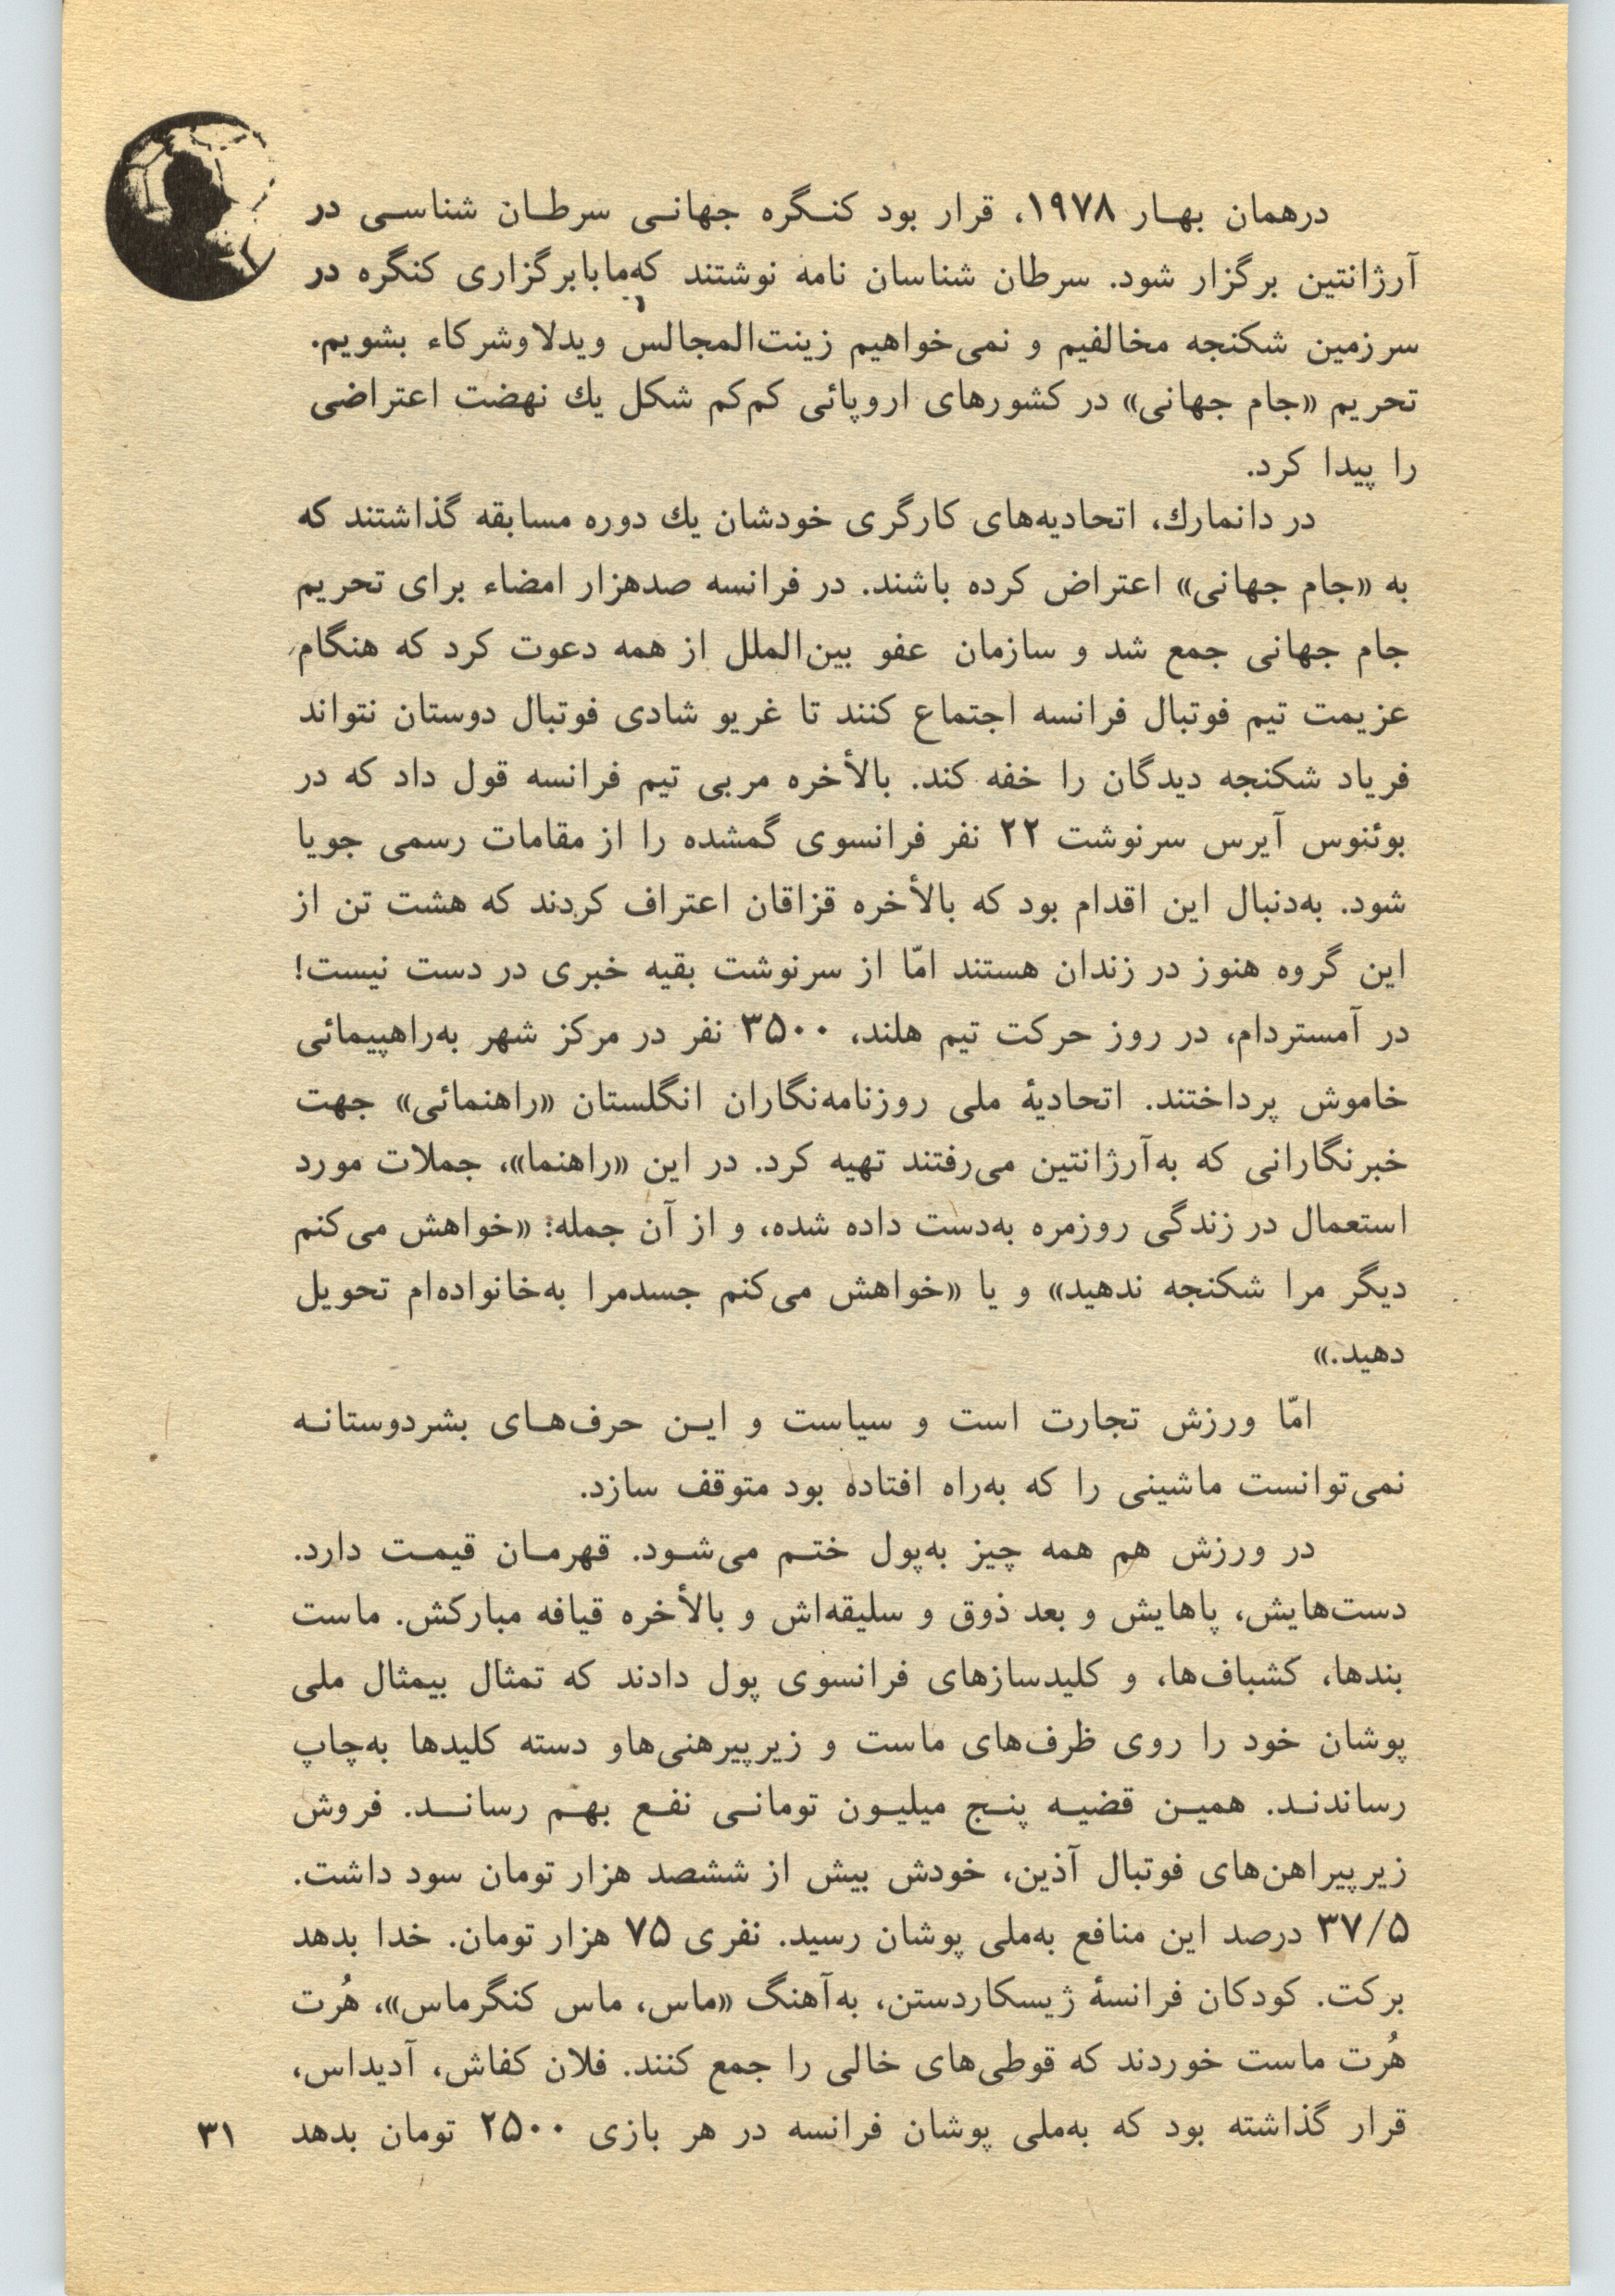 درهمان بهار ۱۹۷۸، قرار بود کنگره جهانی سرطان شناسی در
آرژانتین برگزار شود. سرطان شناسان نامه نوشتند که‌ما‌با‌برگزاری کنگره در
سرزمین شکنجه مخالفیم و نمی‌خواهیم زینت‌المجالس ویدلا‌وشرکاء بشویم.
تحریم «جام جهانی» در کشورهای اروپائی کم‌کم شکل یك نهضت اعتراضی
را پیدا کرد.
در دانمارك، اتحادیه‌های کارگری خودشان یك دوره مسابقه گذاشتند که
به «جام جهانی» اعتراض کرده باشند. در فرانسه صدهزار امضاء برای تحریم
جام جهانی جمع شد و سازمان عفو بین‌الملل از همه دعوت کرد که هنگام
عزیمت تیم فوتبال فرانسه اجتماع کنند تا غریو شادی فوتبال دوستان نتواند
فریاد شکنجه دیدگان را خفه کند. بالأخره مربی تیم فرانسه قول داد که در
بوئنوس آیرس سرنوشت ۲۲ نفر فرانسوی گمشده را از مقامات رسمی جویا
شود. به‌دنبال این اقدام بود که بالأخره قزاقان اعتراف کردند که هشت تن از
این گروه هنوز در زندان هستند امّا از سرنوشت بقیه خبری در دست نیست!
در آمستردام، در روز حرکت تیم هلند، ۳۵۰۰ نفر در مرکز شهر به‌راهپیمائی
خاموش پرداختند. اتحادیهٔ ملی روزنامه‌نگاران انگلستان «راهنمائی» جهت
خبرنگارانی که به‌آرژانتین می‌رفتند تهیه کرد. در این «راهنما»، جملات مورد
استعمال در زندگی روزمره به‌دست داده شده، و از آن جمله: «خواهش می‌کنم
دیگر مرا شکنجه ندهید» و یا «خواهش می‌کنم جسدمرا به‌خانواده‌ام تحویل
دهید.»
امّا ورزش تجارت است و سیاست و این حرف‌های بشردوستانه
نمی‌توانست ماشینی را که به‌راه افتاده بود متوقف سازد.
در ورزش هم همه چیز به‌پول ختم می‌شود. قهرمان قیمت دارد.
دست‌هایش، پاهایش و بعد ذوق و سلیقه‌اش و بالأخره قیافه مبارکش. ماست
بندها، کشباف‌ها، و کلیدسازهای فرانسوی پول دادند که تمثال بیمثال ملی
پوشان خود را روی ظرف‌های ماست و زیرپیرهنی‌هاو دسته کلیدها به‌چاپ
رساندند. همین قضیه پنج میلیون تومانی نفع بهم رساند. فروش
زیرپیراهن‌های فوتبال آذین، خودش بیش از ششصد هزار تومان سود داشت.
۳۷/۵ درصد این منافع به‌ملی پوشان رسید. نفری ۷۵ هزار تومان. خدا بدهد
برکت. کودکان فرانسهٔ ژیسکاردستن، به‌آهنگ «ماس، ماس کنگرماس»، هُرت
هُرت ماست خوردند که قوطی‌های خالی را جمع کنند. فلان کفاش، آدیداس،
قرار گذاشته بود که به‌ملی پوشان فرانسه در هر بازی ۲۵۰۰ تومان بدهد
۳۱